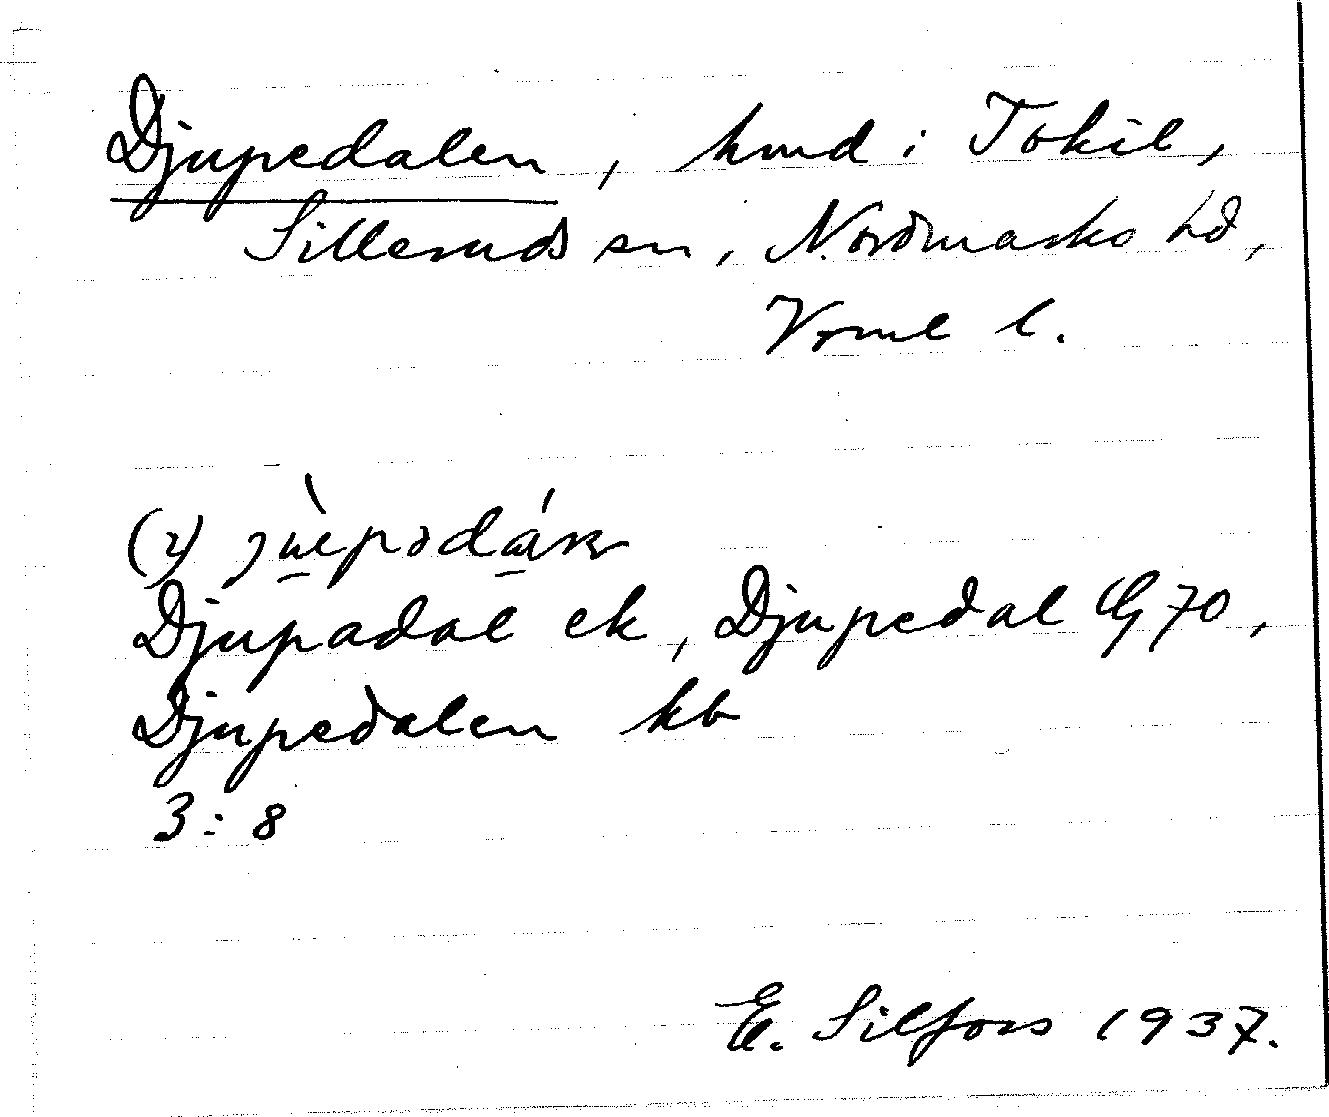 Djupedalen, hmd i Tokil,
Silleruds sn, Nordmarks hd,
Vrml l.
(i)
Djupadal ek, Djupedal G 70,
Djupedalen kb
3:8
E. Silfors 1937.